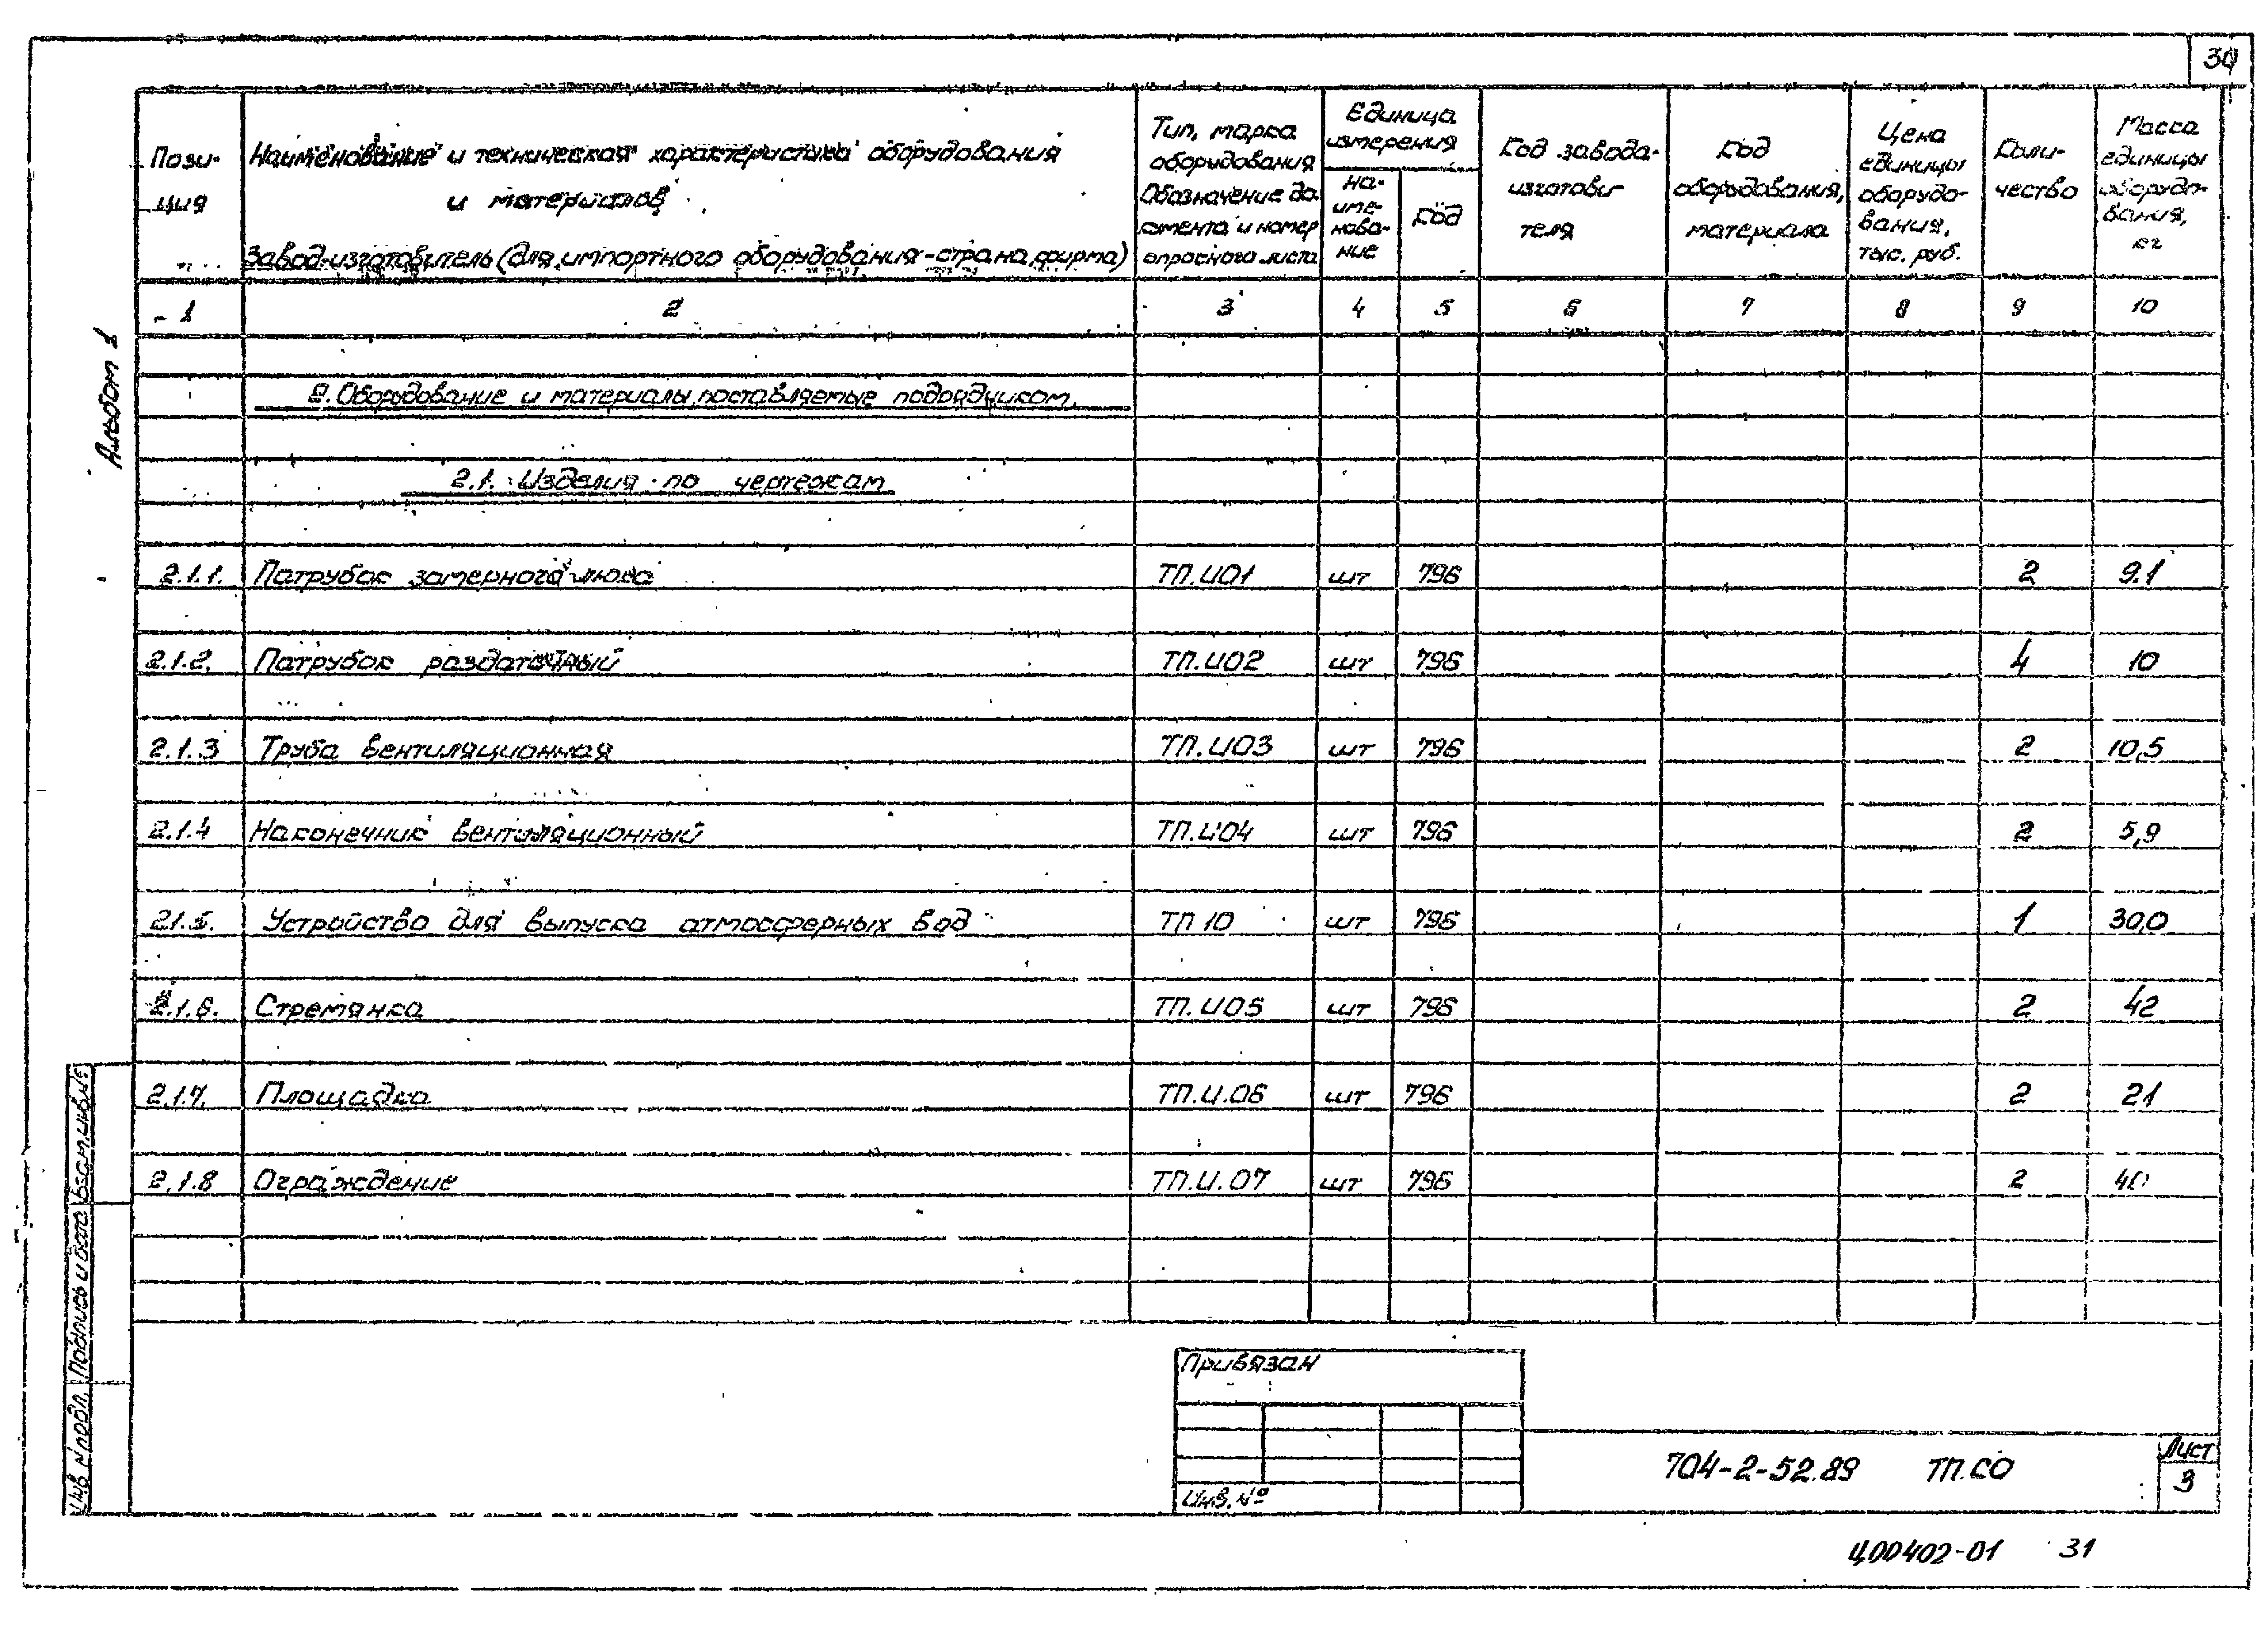 30
Пози-
ция
Наименование и техническая характеристика оборудования
и материалов
Завод-изготовитель (для импортного оборудования-страна, фирма)
Тип, марка
оборудования
Обозначение до-
кумента и номер
опросного листа
Единица
измерения
на-
име-
нова-
ние
Код
Код завода-
изготови-
теля
Код
оборудования,
материала
Цена
единицы
оборудо-
вания,
тыс. руб.
Коли-
чество
Масса
единицы
оборудо-
вания,
кг
1 2 3 4 5 6 7 8 9 10
Альбом 1
2. Оборудование и материалы, поставляемые подрядчиком.
2.1. Изделия по чертежам
2.1.1. Патрубок замерного люка ТП.И01 шт 796 2 9.1
2.1.2. Патрубок раздаточный ТП.И02 шт 796 4 10
2.1.3 Труба вентиляционная ТП.И03 шт 796 2 10,5
2.1.4 Наконечник вентиляционный ТП.И04 шт 796 2 5,9
2.1.5. Устройство для выпуска атмосферных вод ТП 10 шт 796 1 30,0
2.1.6. Стремянка ТП.И05 шт 796 2 42
2.1.7. Площадка ТП.И.06 шт 796 2 21
2.1.8 Ограждение ТП.И.07 шт 796 2 40
Взам.инв.№
Подпись и дата
Инв N подл.
Привязан
Инв. №
704-2-52.89 ТП.СО
Лист
3
Ц00402-01 31